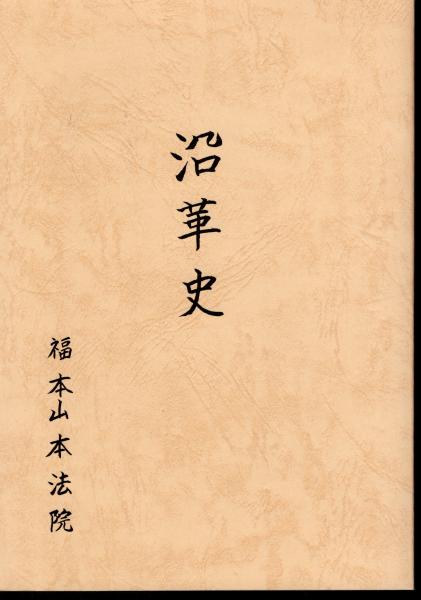 沿革史
福本山本法院